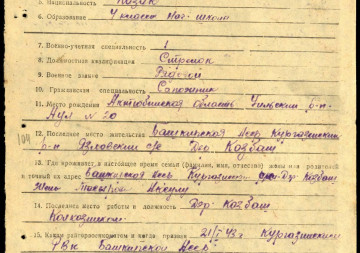 5. Национальность Казак
6. Образование 4 класса Нач. школа
7. Военно-учетная специальность 1
8. Должностная квалификация Стрелок
9. Военное звание Рядовой
10. Гражданская специальность Сапожник
11. Место рождения Актюбинская область Уильский р-н
Аул N 20
12. Последнее место жительства Башкирская АССР Кургазинский
р-н с/с дер Казбаш
13. Где проживает в настоящее время семья (фамилия, имя, отчество) жены или родителей
и точный их адрес Башкирская АССР р-н дер Казбаш
Жена
14. Последнее место работы и должность дер. Казбаш
15. Каким райвоенкоматом и когда призван 21/I 43 г
РВК Башкирской АССР